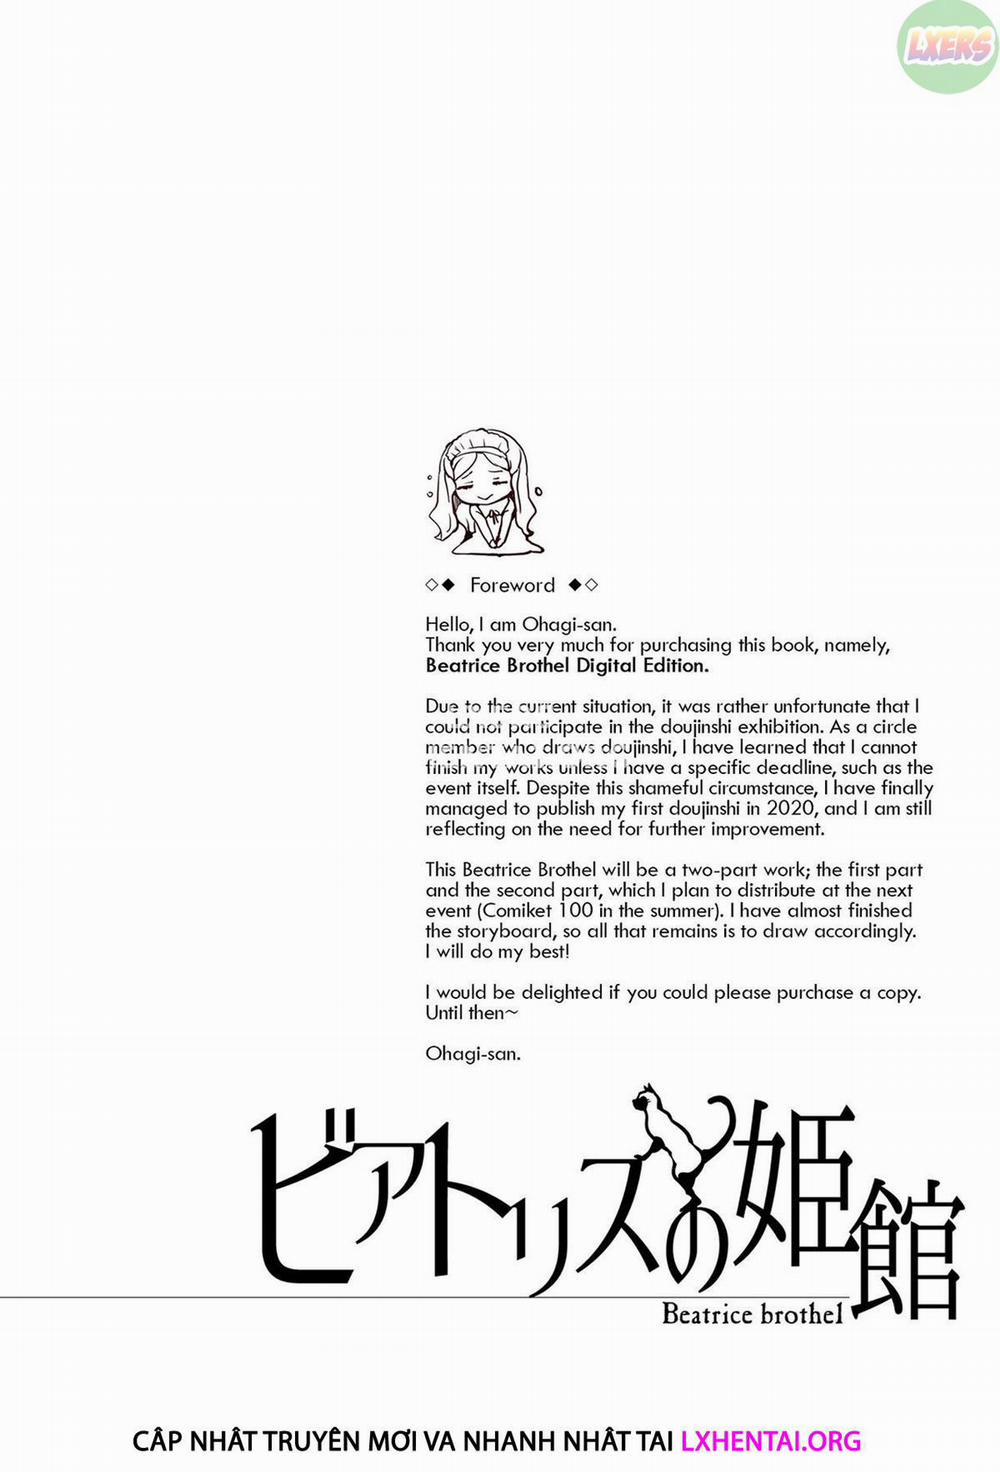 LXERS
◇◆ Foreword ◆◇
Hello, I am Ohagi-san.
Thank you very much for purchasing this book, namely,
Beatrice Brothel Digital Edition.
Due to the current situation, it was rather unfortunate that I
could not participate in the doujinshi exhibition. As a circle
member who draws doujinshi, I have learned that I cannot
finish my works unless I have a specific deadline, such as the
event itself. Despite this shameful circumstance, I have finally
managed to publish my first doujinshi in 2020, and I am still
reflecting on the need for further improvement.
This Beatrice Brothel will be a two-part work; the first part
and the second part, which I plan to distribute at the next
event (Comiket 100 in the summer). I have almost finished
the storyboard, so all that remains is to draw accordingly.
I will do my best!
I would be delighted if you could please purchase a copy.
Until then~
Ohagi-san.
ビアトリスの姫館
Beatrice brothel
CÂP NHÂT TRUYÊN MƠI VA NHANH NHÂT TAI LXHENTAI.ORG